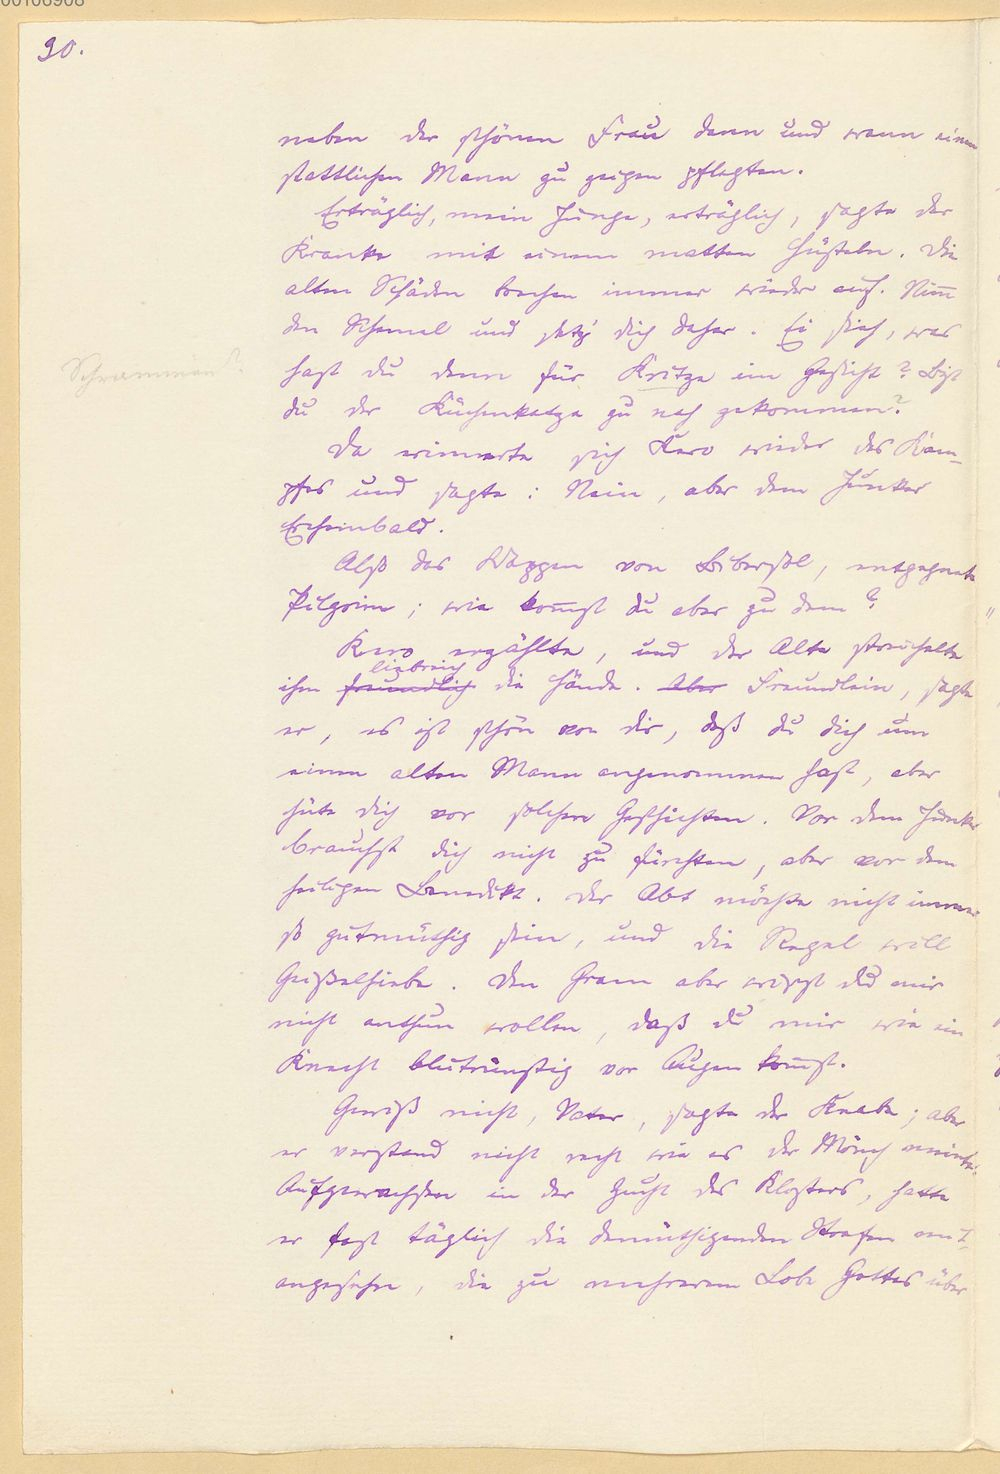 00106908
30.
neben der schönen Frau dann und wann einen
stattlichen Mann zu zeigen pflegten.
Erträglich, mein Junge, erträglich, sagte der
Kranke mit einem matten Hüsteln. Die
alten Schäden brechen immer wieder auf. Nim̅
den Schemel und setz' dich daher. Ei sieh, was
Schrammen?
hast du denn für Kritze im Gesicht? Bist
du der Küchenkatze zu nah gekommen?
Da erinnerte sich Kero wieder des Kam-
pfes und sagte: Nein, aber dem Junker
Erchinbald.
Also das Wappen von Bibersol, entgegnete
Pilgrim; wie kom̅st du aber zu dem?
Kero erzählte, und der Alte streichelte
liebreich
ihm freundlich die Hände. Aber Freundlein, sagte
er, es ist schön von dir, daß du dich um
einen alten Mann angenommen hast, aber
hüte dich vor solchen Geschichten. Vor dem Junker
brauchst dich nicht zu fürchten, aber vor dem
heiligen Benedikt. Der Abt möchte nicht immer
so gutmüthig sein, und die Regel will
Geißelhiebe. Den Gram aber wirst du mir
nicht anthun wollen, daß du mir wie ein
Knecht blutrünstig vor Augen kom̅st.
Gewiß nicht, Vater, sagte der Knabe; aber
er verstand nicht recht wie es der Mönch meinte.
Aufgewachsen in der Zucht des Klosters, hatte
er fast täglich die demüthigenden Strafen mit-
angesehen, die zu mehrerem Lobe Gottes über